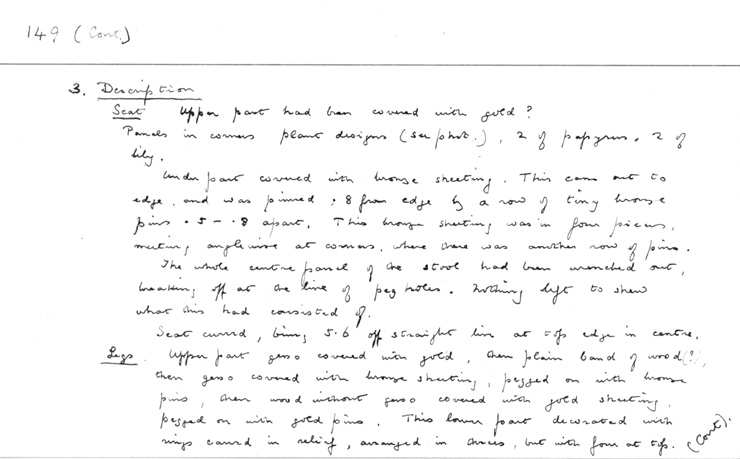 149 (Cont.)
3. Description
Seat Upper part had been covered with gold?
Panels in corners plant designs (see phot.), 2 of papyrus. 2 of
lily.
Under part covered with bronze sheeting. This came out to
edge, and was pinned .8 from edge by a row of tiny bronze
pins .5 - .8 apart. This bronze sheeting was in four pieces,
meeting anglewise at corners, where there was another row of pins.
The whole centre panel of the stool had been wrenched out,
breaking off at the line of peg holes. Nothing left to shew
what this had consisted of.
Seat curved, being 5.6 off straight line at top edge in centre.
Legs. Upper part gesso covered with gold, then plain band of wood (?),
then gesso covered with bronze sheeting, pegged on with bronze
pins, then wood without gesso covered with gold sheeting,
pegged on with gold pins. This lower part decorated with
rings carved in relief, arranged in threes, but with four at top. (Cont).